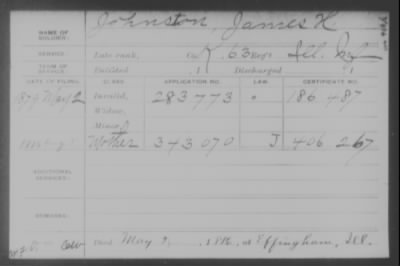 NAME OF SOLDIER: Johnston, James H
SERVICE: Late rank, Co. K, 63 Reg't Ill. Inf
TERM OF SERVICE: Enlisted , 1 Discharged , 1
DATE OF FILING. CLASS. APPLICATION NO. LAW. CERTIFICATE NO.
1879 May 2 Invalid, 283 773 186 487
Widow,
Minor,
Mother 343 070 J 406 267
ADDITIONAL SERVICES:
REMARKS:
Died May , at Effingham, Ill.